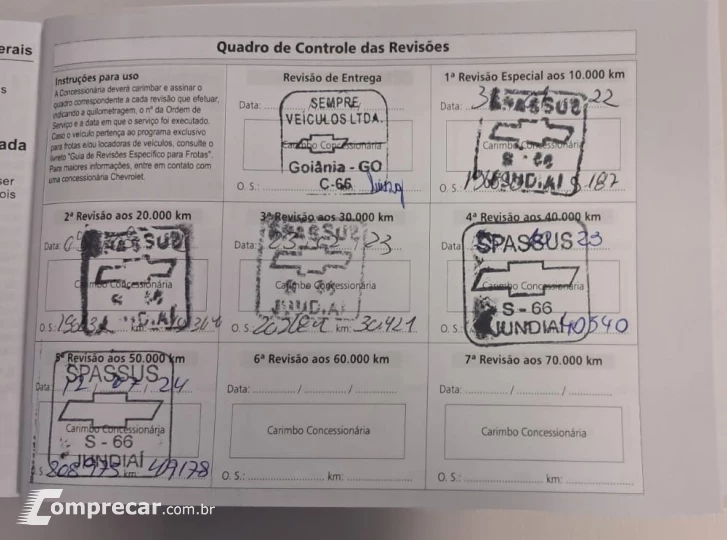 erais
s
ada
ser
ois
Quadro de Controle das Revisões
Instruções para uso
A Concessionária deverá carimbar e assinar o
quadro correspondente a cada revisão que efetuar,
indicando a quilometragem, o nº da Ordem de
Serviço e a data em que o serviço foi executado.
Caso o veículo pertença ao programa exclusivo
para frotas e/ou locadoras de veículos, consulte o
livreto "Guia de Revisões Específico para Frotas".
Para maiores informações, entre em contato com
uma concessionária Chevrolet.
Revisão de Entrega
Data:
SEMPRE
VEÍCULOS LTDA.
Carimbo Concessionária
Goiânia - GO
C-66
O. S.:
1ª Revisão Especial aos 10.000 km
Data: 22
SPASSUS
Carimbo Concessionária
S - 66
JUNDIAÍ
O. S.: 187
2ª Revisão aos 20.000 km
Data:
SPASSUS
Carimbo Concessionária
JUNDIAÍ
O. S.:
3ª Revisão aos 30.000 km
Data: 23
SPASSUS
Carimbo Concessionária
JUNDIAÍ
O. S.: km: 30.421
4ª Revisão aos 40.000 km
Data: 23
SPASSUS
Carimbo Concessionária
S - 66
JUNDIAÍ 40540
5ª Revisão aos 50.000 km
SPASSUS
Data: 12 / 07 / 24
Carimbo Concessionária
S - 66
JUNDIAÍ
S. 808975 km: 49178
6ª Revisão aos 60.000 km
Data: / /
Carimbo Concessionária
O. S.: km:
7ª Revisão aos 70.000 km
Data: / /
Carimbo Concessionária
O. S.: km:
Comprecar.com.br